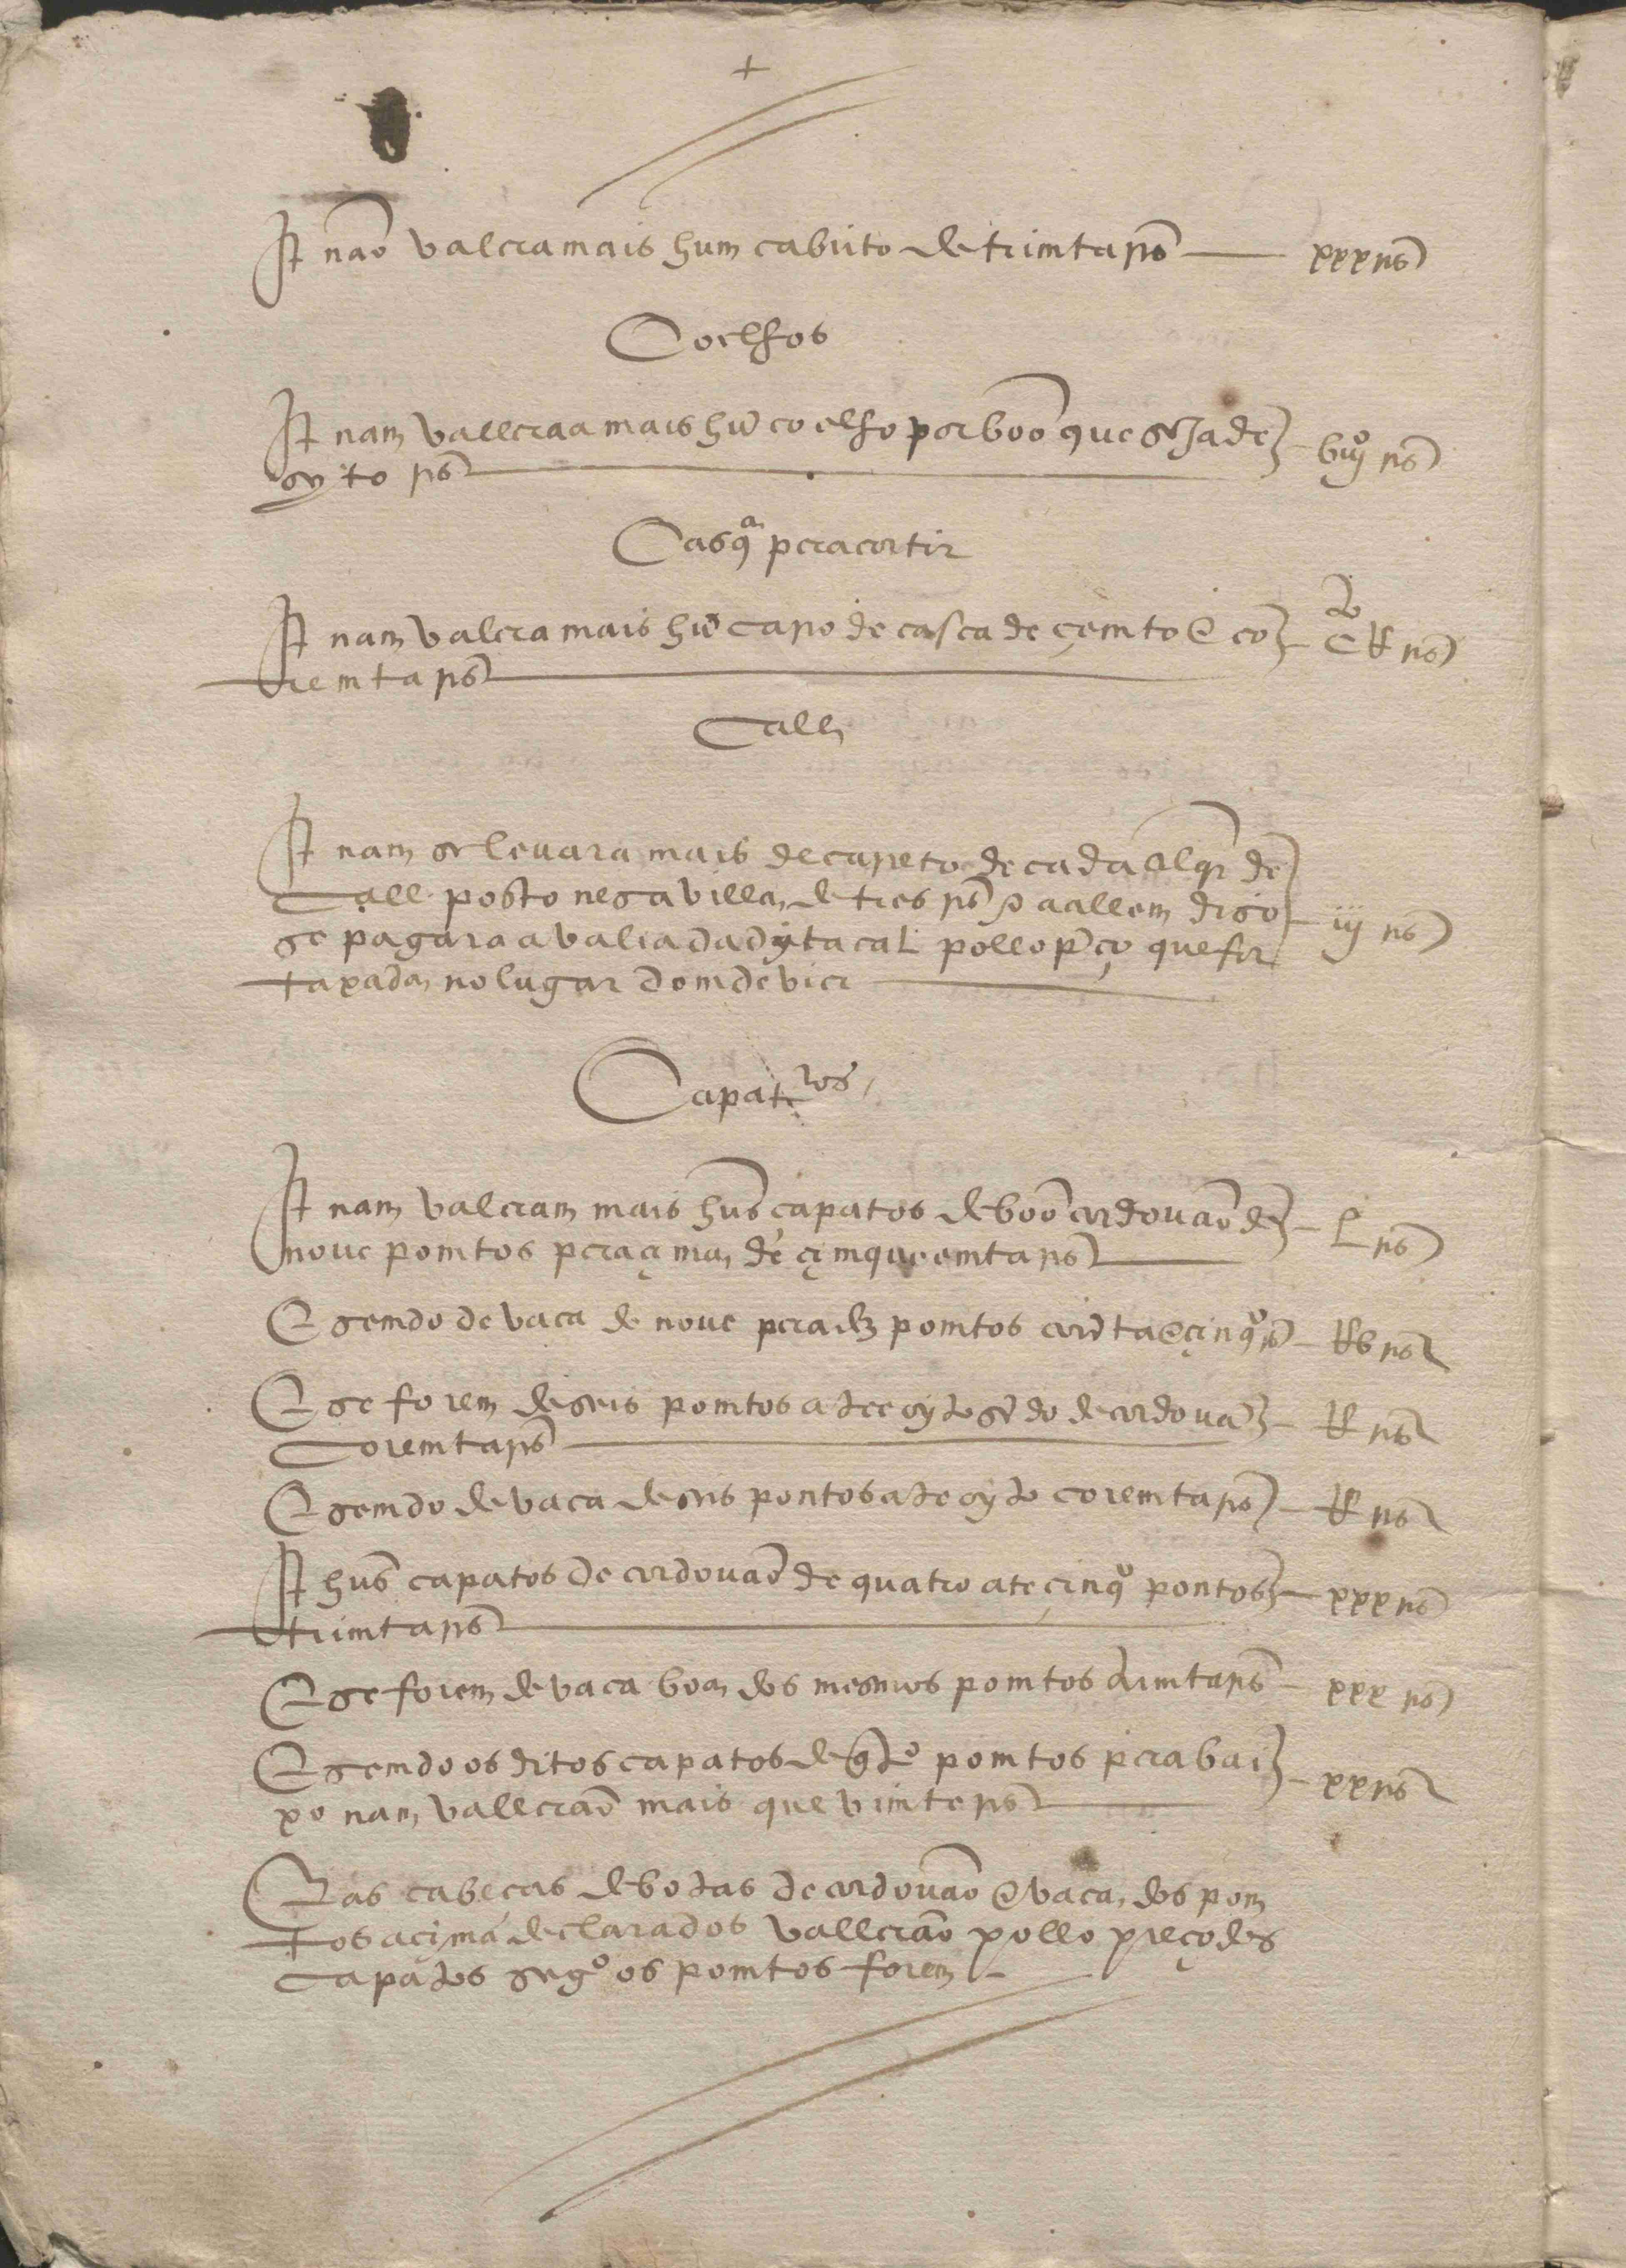 +
It não valera mais hum cabrito de trimta rs̃ xxx rs̃
Coelhos
It nam vallera a mais hũ coelho por boõ que seJa de
oyto rs̃ biijº rs̃
Casqª pera cortir
It nam valera mais hũ caro de casca de çemto e co
remta rs̃ cto R rs̃
Call
It nam se levara mais de careto de cada alqr̃ de
Call posto nesa villa, de tres rs̃ e aallem diso
se pagara a valia da dyta cal pollo pr̃ço que for
taxada, no lugar domde vier iij rs̃
Capatros
It nam valeram mais hũs çapatos de boõ cordovaõ de
nove pomtos pera çima, de çimquoemta rs̃ L rs̃
E semdo de vaca de nove pera dz pomtos corẽta e çinqº rs̃ Rb rs̃
E se forem de seis pomtos atee oyto sẽdo de cordovã
Coremta rs̃ R rs̃
E semdo de vaca de seis pontos ate oyto coremta rs̃ R rs̃
It hũs capatos de cordovaõ de quatro ate çinqº pontos
trimta rs̃ xxx rs̃
E se forem de vaca boa, dos mesmos pomtos trimta rs̃ xxx rs̃
E semdo os ditos capatos de qtº pomtos pera bai
xo nam, valleraõ mais que vimte rs̃ xx rs̃
E as cabeças de botas de cordovaõ e vaca, dos pom
tos açima declarados valleraõ pollo preço dos
capatos segº os pomtos forem